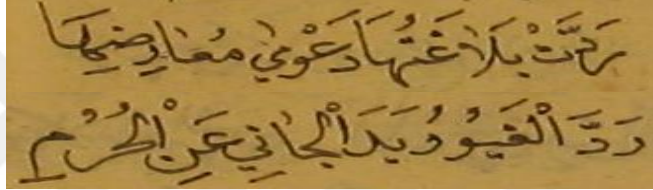 رَدَّتْ بَلَاغَتُهَا دَعْوىٰ مُعَارِضِهَا
رَدَّ الْغَيُوُرِ يَدَ الْجَانِي عَنِ الْحُرَمِ